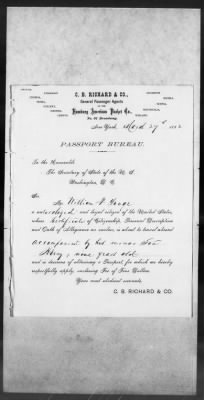 C. B. RICHARD & CO.,
General Passenger Agents
OF THE
Hamburg American Packet Co.,
No. 61 Broadway.
New York, March 27th 188
PASSPORT BUREAU.
To the Honorable
The Secretary of State of the U. S.
Washington, D. C.
Sir:
Mr. William F.
a naturalized and loyal citizen of the United States,
whose Certificate of Citizenship, Personal Description
and Oath of Allegiance we enclose, is about to travel abroad
accompanied by his minor Son
years old
and is desirous of obtaining a Passport, for which we hereby
respectfully apply, enclosing Fee of Five Dollars.
Your most obedient servants,
C. B. RICHARD & CO.